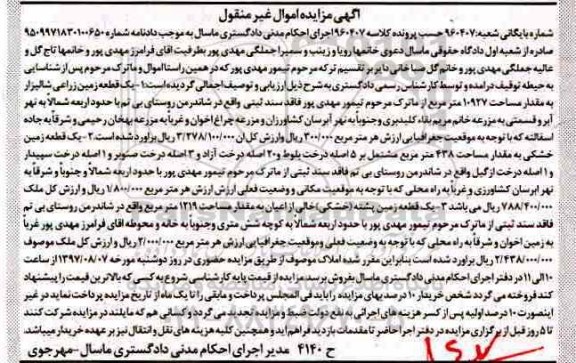 آگهی مزایده اموال غیر منقول
شماره بایگانی شعبه:۹۶۰۴۰۷ حسب پرونده کلاسه ۹۶۰۴۰۷ اجرای احکام مدنی دادگستری ماسال به موجب دادنامه شماره ۹۵۰۹۹۷۱۸۳۰۱۰۰۶۵۰
صادره از شعبه اول دادگاه حقوقی ماسال دعوی خانمها رویا و زینب و سمیرا جملگی مهدی پور بطرفیت آقای فرامرز مهدی پور و خانمها تاج گل و
عالیه جملگی مهدی پور و خانم گل صبا خانی دایر بر تقسیم ترکه مرحوم تیمور مهدی پور که در همین راستا اموال و ماترک مرحوم پس از شناسایی
به حیطه توقیف درآمده و توسط کارشناس رسمی دادگستری به شرح ذیل ارزیابی و توصیف اجمالی گردیده است: ۱- یک قطعه زمین زراعی شالیزار
به مقدار مساحت ۱۰۹۲۷ متر مربع از ماترک مرحوم تیمور مهدی پور فاقد سند ثبتی واقع در شاندرمن روستای بی تم با حدود اربعه شمالاً به نهر
آبر و قسمتی به مزرعه خانم مریم بناه کلیدبری و جنوباً به نهر آبرسان کشاورزان و مزرعه چراغ اخوان و غرباً به مزرعه بهخان رحیمی و شرقاً به جاده
اسفالته که با توجه به موقعیت جغرافیایی ارزش هر متر مربع ۳۰۰/۰۰۰ ریال وارزش کل آن ۳/۲۷۸/۱۰۰/۰۰۰ ریال برآورد شده است. ۲- یک قطعه زمین
خشکی به مقدار مساحت ۴۳۸ متر مربع مشتمل بر ۵ اصله درخت بلوط و ۲۰ اصله درخت آزاد و ۳ اصله درخت صنوبر و ۱ اصله درخت سپیدار
و ۱ اصله درخت ازگیل واقع در شاندرمن روستای بی تم فاقد سند ثبتی از ماترک مرحوم تیمور مهدی پور با حدود اربعه شمالاً و جنوباً و شرقاً به
نهر آبرسان کشاورزی و غرباً به راه محلی که با توجه به موقعیت مکانی و وضعیت فعلی ارزش ارزش هر متر مربع ۱/۸۰۰/۰۰۰ ریال و ارزش کل ملک
۷۸۸/۴۰۰/۰۰۰ ریال می باشد ۳- یک قطعه زمین پشته (خشکی) خالی از اعیان به مقدار مساحت ۱۲۱۹ متر مربع واقع در شاندرمن روستای بی تم
فاقد سند ثبتی از ماترک مرحوم تیمور مهدی پور با حدود اربعه شمالاً به کوچه شش متری و جنوباً به خانه و محوطه آقای فرامرز مهدی پور غرباً
به زمین اخوان و شرقاً به راه محلی که با توجه به وضعیت فعلی وموقعیت جغرافیایی ارزش هر متر مربع ۲/۰۰۰/۰۰۰ ریال و ارزش کل ملک موصوف
۲/۴۳۸/۰۰۰/۰۰۰ ریال برآورد شده است بنابراین مقرر شده املاک موصوف از طریق مزایده حضوری در روز دوشنبه مورخه ۱۳۹۷/۰۸/۰۷ از ساعت
۱۰ الی ۱۱ در دفتر اجرای احکام مدنی دادگستری ماسال بفروش برسد مزایده از قیمت پایه کارشناسی شروع به کسی که بالاترین قیمت را پیشنهاد
کند فروخته می گردد شخص خریدار ۱۰ درصد بهای مزایده را باید فی المجلس پرداخت و مابقی را تا یک ماه از تاریخ مزایده پرداخت نماید در غیر
اینصورت ۱۰ درصد اولیه پس از کسر هزینه های اجرائی به نفع دولت ضبط و مزایده تجدید می گردد و کسانی هم که مایلند در مزایده شرکت کنند
تا ۵ روز قبل از برگزاری مزایده در دفتر اجرا حاضر تا مقدمات بازدید فراهم آید و همچنین کلیه هزینه های نقل و انتقال نیز بر عهده خریدار میباشد.
ح ۴۱۴۰ مدیر اجرای احکام مدنی دادگستری ماسال-مهرجوی